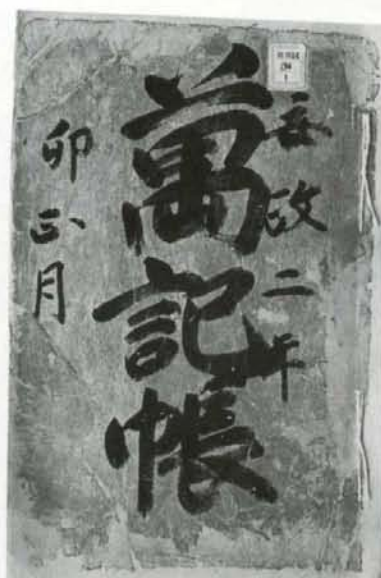 安政二年
萬記帳
卯正月